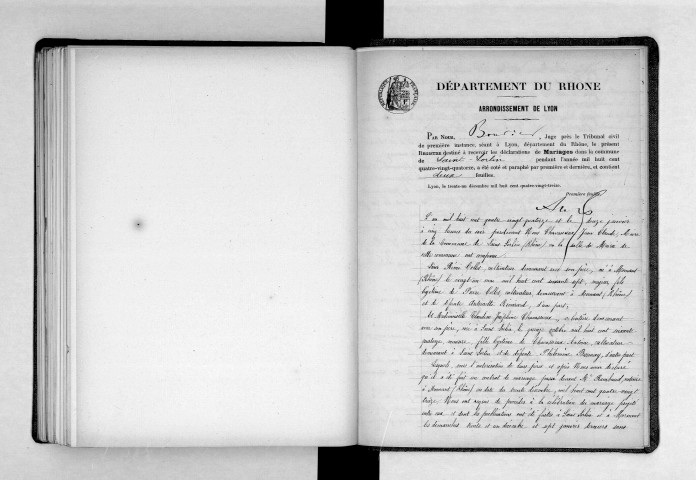 DÉPARTEMENT DU RHONE
ARRONDISSEMENT DE LYON
PAR NOUS, Juge près le Tribunal civil
de première instance, séant à Lyon, département du Rhône, le présent
REGISTRE destiné à recevoir les déclarations de Mariages dans la commune
de Saint-Sorlin pendant l'année mil huit cent
quatre-vingt-quatorze, a été coté et paraphé par première et dernière, et contient
deux feuilles.
Lyon, le trente-un décembre mil huit cent quatre-vingt-treize.
Première feuille
L'an mil huit cent quatre vingt quatorze et le janvier
à cinq heures du soir pardevant Nous Chaussende Jean Claude, Maire
de la Commune de Saint Sorlin (Rhône) en la salle de Mairie de
cette commune ont comparu
Sieur Collet, cultivateur demeurant avec son père, né à Mornant
(Rhône) le vingt un mil huit cent soixante sept, majeur, fils
légitime de Pierre Collet cultivateur demeurant à Mornant (Rhône)
et de défunte Antoinette d'une part;
Et Mademoiselle Claudine Joséphine Chaussende, demeurant
avec son père, née à Saint Sorlin le octobre mil huit cent soixante
quatorze, mineure, fille légitime de Chaussende Antoine, cultivateur
demeurant à Saint Sorlin et de défunte Philomène d'autre part
Lesquels, sous l'autorisation de leurs pères et après Nous avoir déclaré
qu'il a été fait un contrat de mariage passé devant Me notaire
à Mornant (Rhône) en date du trente décembre, mil huit cent quatre-vingt
treize, Nous ont requis de procéder à la célébration du mariage projeté
entre eux et dont les publications ont été faites à Saint Sorlin et à Mornant
les dimanches, trente et un décembre et sept janvier derniers sans